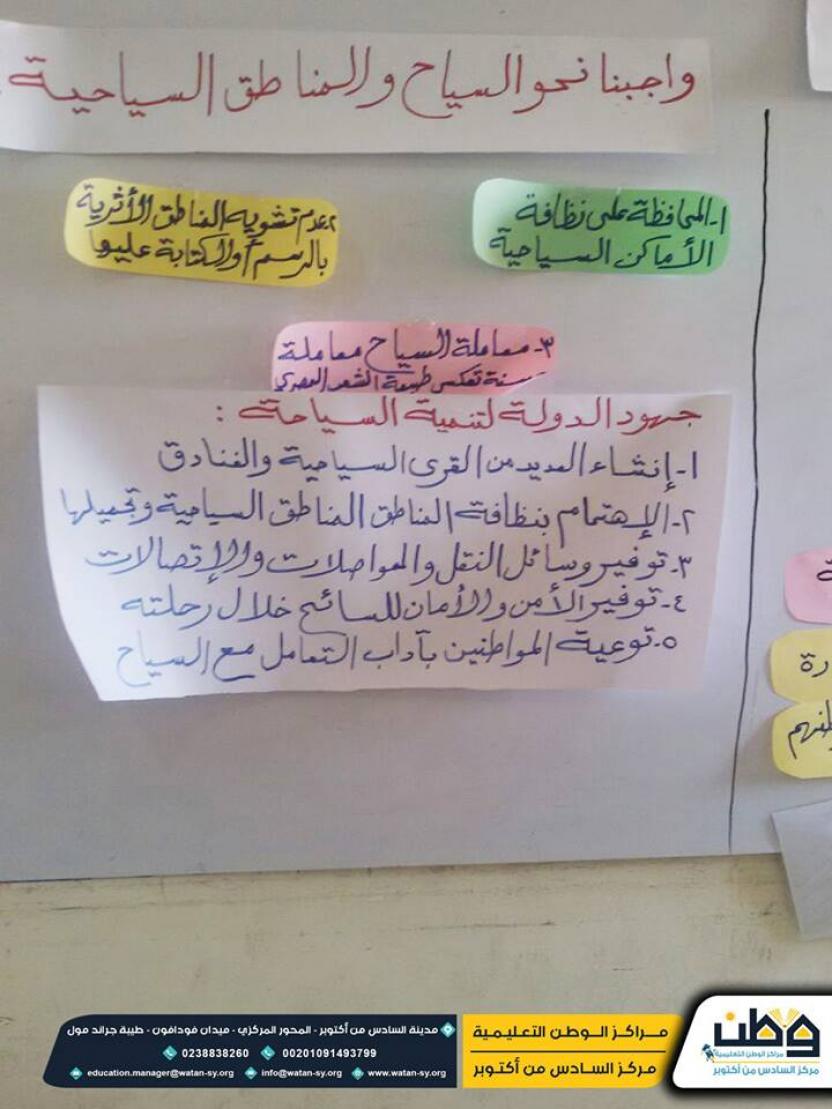 واجبنا نحو السياح والمناطق السياحية
١- المحافظة على نظافة
الأماكن السياحية
٢- عدم تشويه المناطق الأثرية
بالرسم أو الكتابة عليها
٣- معاملة السياح معاملة
تعكس طبيعة الشعب المصري
جهود الدولة لتنمية السياحة :
١- إنشاء العديد من القرى السياحية والفنادق
٢- الإهتمام بنظافة المناطق المناطق السياحية وتجميلها
٣- توفير وسائل النقل والمواصلات والإتصالات
٤- توفير الأمن والأمان للسائح خلال رحلته
٥- توعية المواطنين بآداب التعامل مع السياح
مدينة السادس من أكتوبر - المحور المركزي - ميدان فودافون - طيبة جراند مول
0238838260 00201091493799
education.manager@watan-sy.org info@watan-sy.org www.watan-sy.org
مراكز الوطن التعليمية
مركز السادس من أكتوبر
وطن
مراكز الوطن التعليمية
مركز السادس من أكتوبر